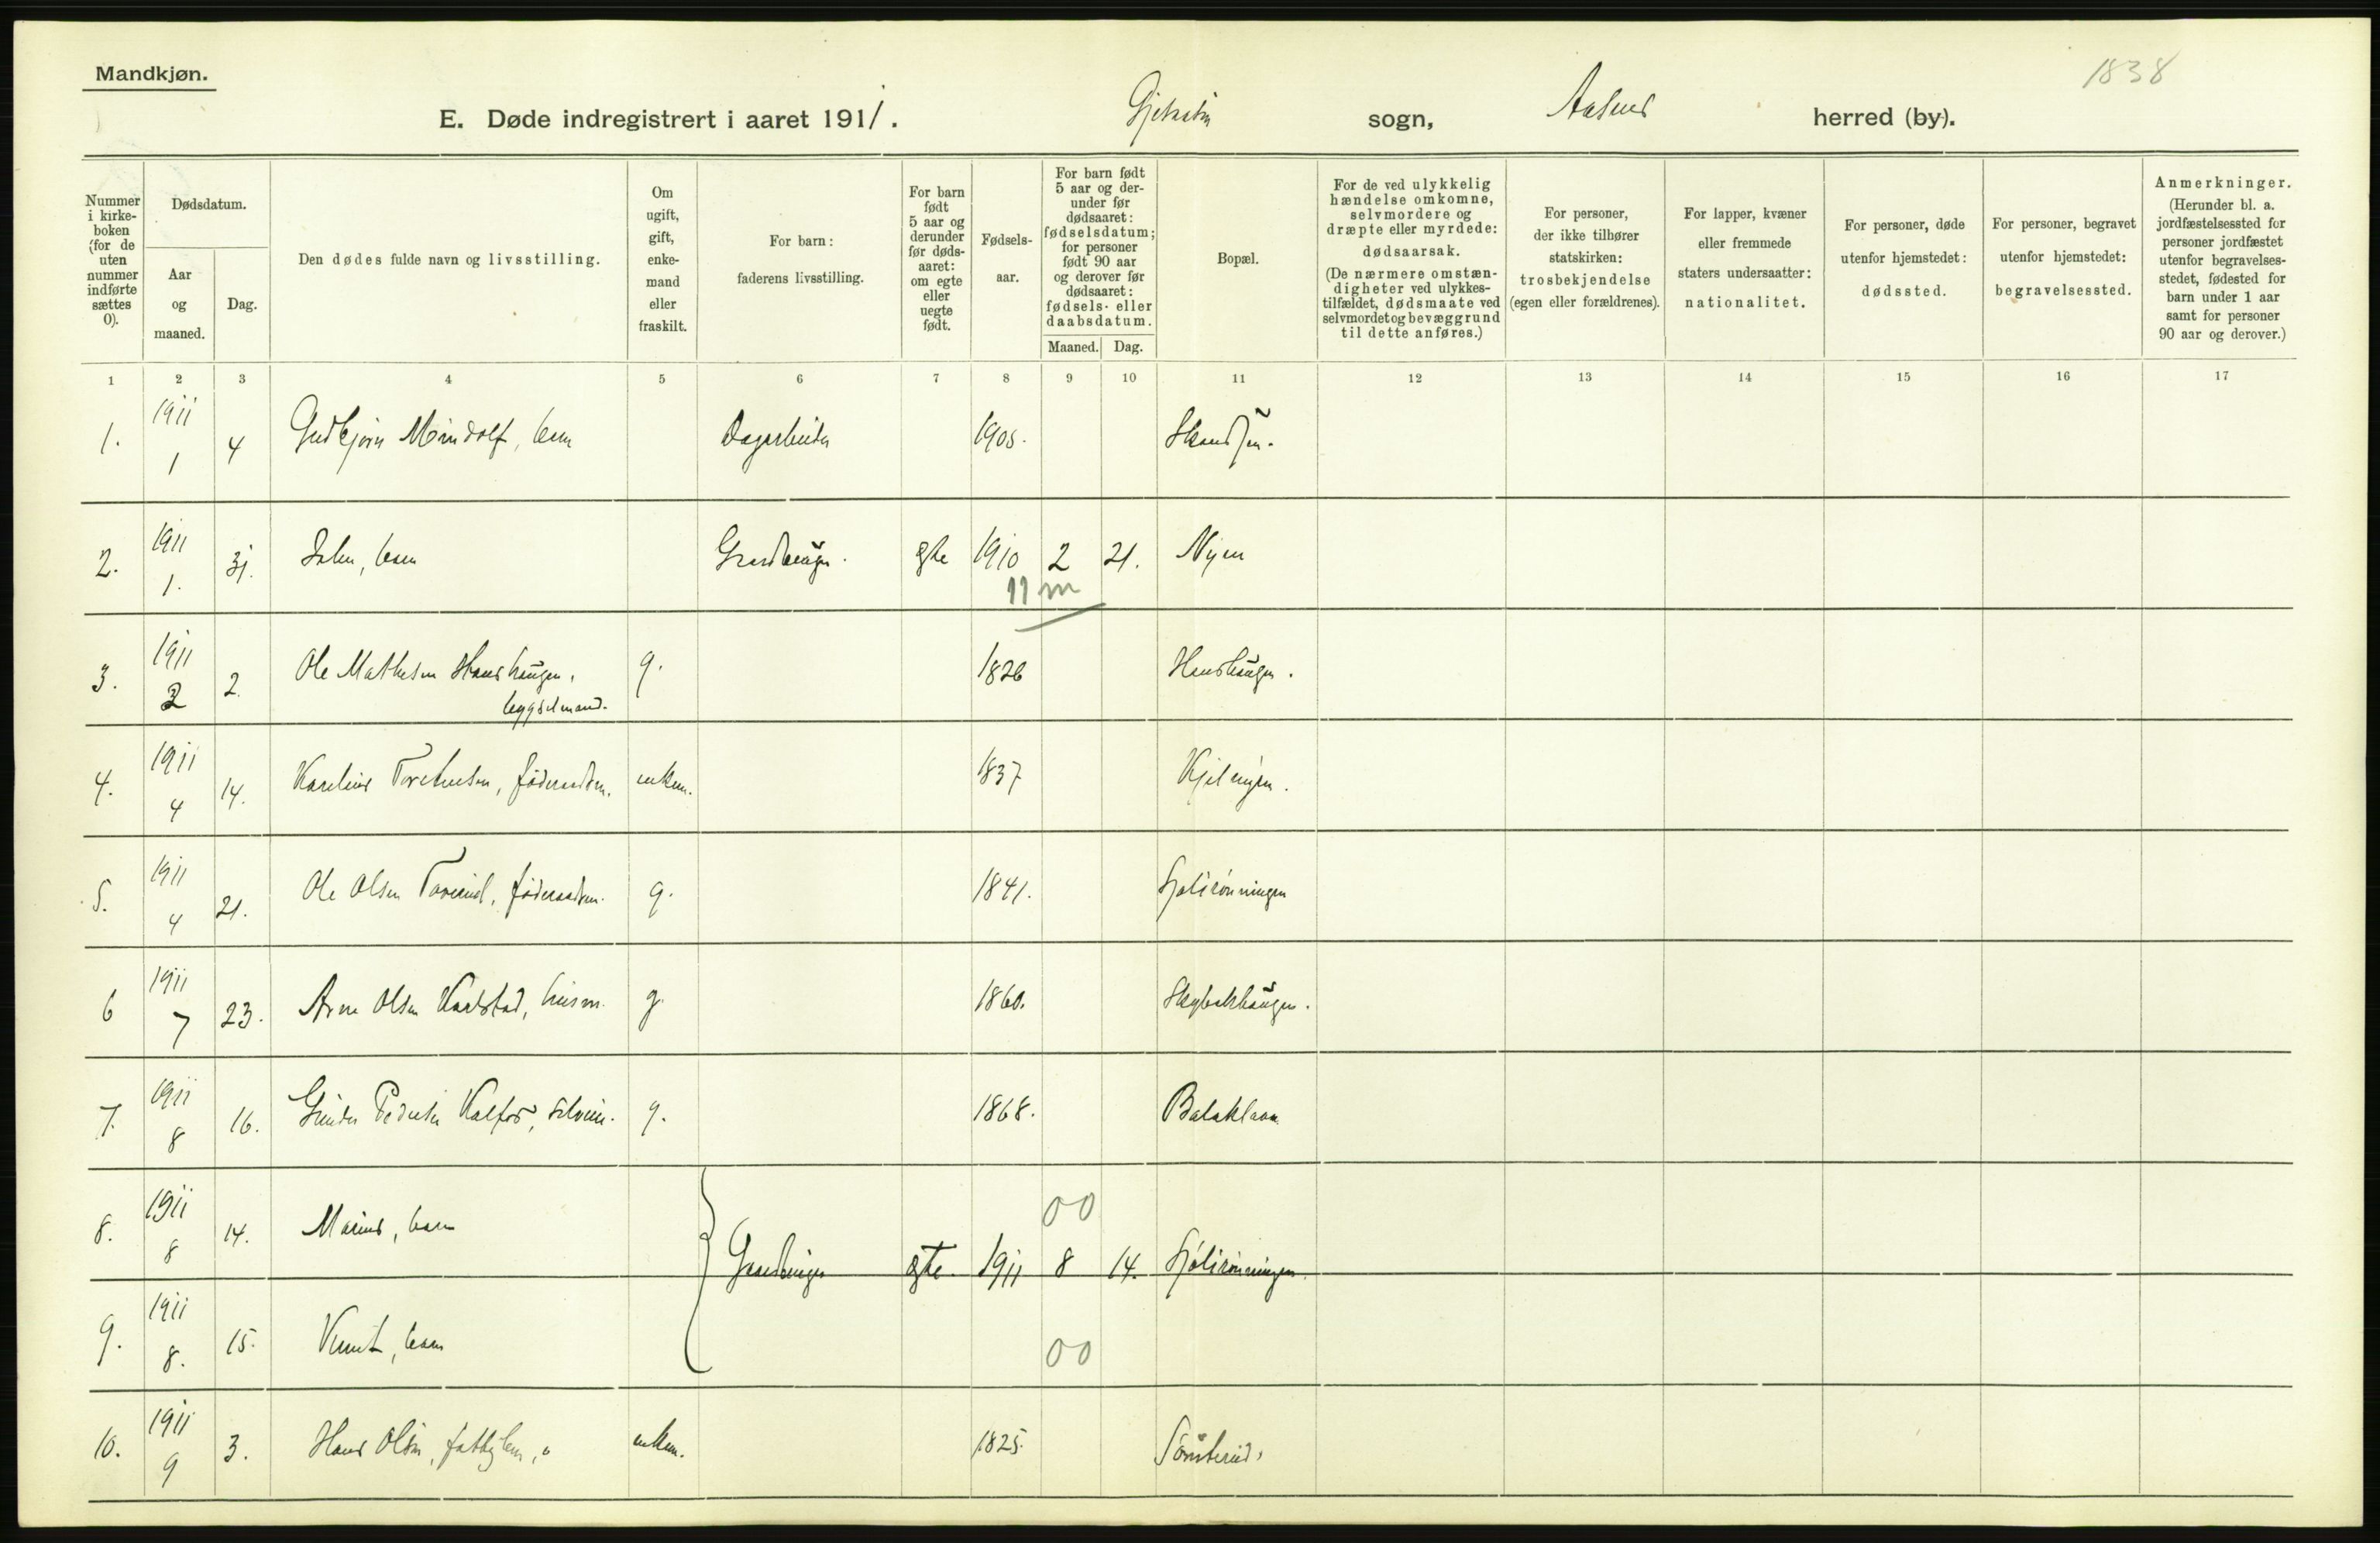 Mandkjøn.
1838
E. Døde indregistrert i aaret 1911. sogn, Aasnes herred (by).
Nummer i kirkeboken (for de uten nummer indførte sættes 0).
Dødsdatum.
Aar og maaned.
Dag.
Den dødes fulde navn og livsstilling.
Om ugift, gift, enkemand eller fraskilt.
For barn: faderens livsstilling.
For barn født 5 aar og derunder før dødsaaret: om egte eller uegte født.
Fødselsaar.
For barn født 5 aar og derunder før dødsaaret: fødselsdatum; for personer født 90 aar og derover før dødsaaret: fødsels- eller daabsdatum.
Maaned. Dag.
Bopæl.
For de ved ulykkelig hændelse omkomne, selvmordere og dræpte eller myrdede: dødsaarsak.
(De nærmere omstændigheter ved ulykkestilfældet, dødsmaate ved selvmordet og bevæggrund til dette anføres.)
For personer, der ikke tilhører statskirken: trosbekjendelse (egen eller forældrenes).
For lapper, kvæner eller fremmede staters undersaatter: nationalitet.
For personer, døde utenfor hjemstedet: dødssted.
For personer, begravet utenfor hjemstedet: begravelsessted.
Anmerkninger.
(Herunder bl. a. jordfæstelsessted for personer jordfæstet utenfor begravelsesstedet, fødested for barn under 1 aar samt for personer 90 aar og derover.)
1 2 3 4 5 6 7 8 9 10 11 12 13 14 15 16 17
1. 1911 1 4 Gudbjørn Mindolf, barn Dagarbeider 1905.
2. 1911 1. 31. John, barn Gaardbruger. egte 1910 2 21. Nyen
11 m
3. 1911 2 2. Ole Mathesen Hanshaugen, bygselmand. g. 1826 Hanshaugen.
4. 1911 4 14. Karelius, føderaadsm. enkem. 1837
5. 1911 4 21. Ole Olsen, føderaadsm. g. 1841. Sjolirønningen
6 1911 7 23. Arne Olsen Kaalstad, husm. g. 1860.
7. 1911 8 16. Pedersen, selveier. g. 1868. Balaklava
8. 1911 8 14. Marius, barn 00
Gaardbruger egte. 1911 8 14. Sjølirønningen.
9. 1911 8. 15. Knut, barn 00
10. 1911 9 3. Hans Olsen, enkem. 1825.